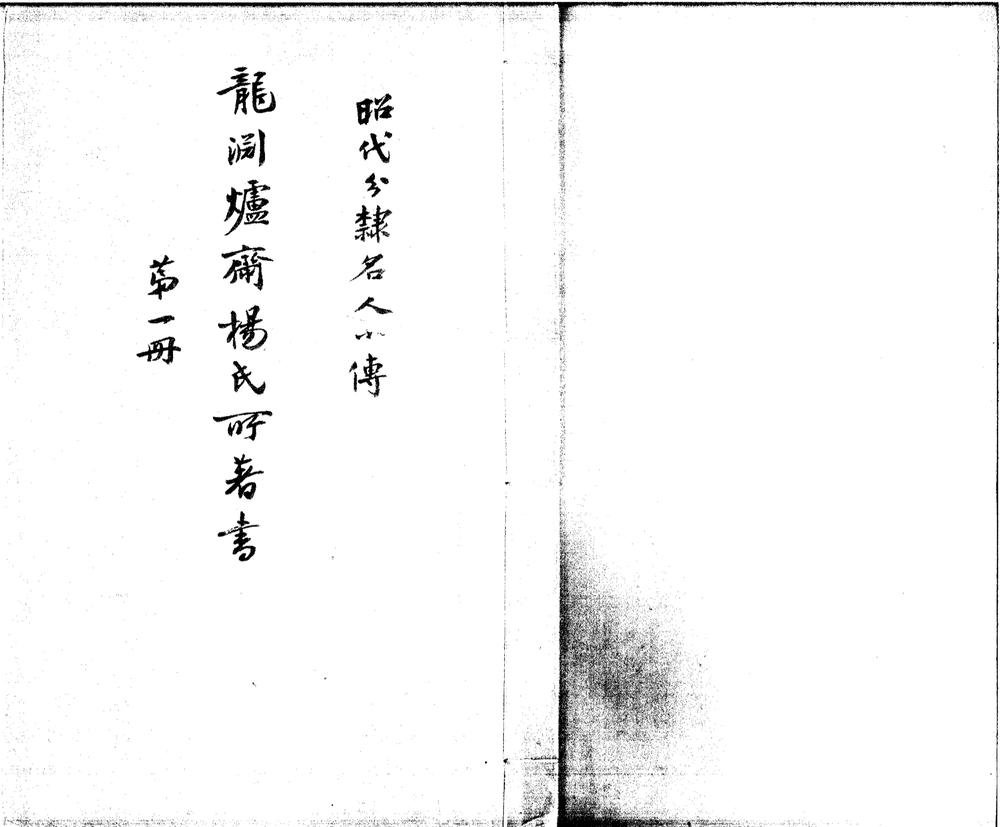 昭代分隸名人小傳
龍淵爐齋楊氏所著書
第一冊